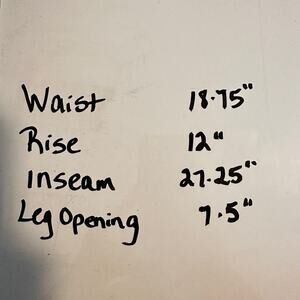 Waist 18.75"
Rise 12"
Inseam 27.25"
Leg Opening 7.5"